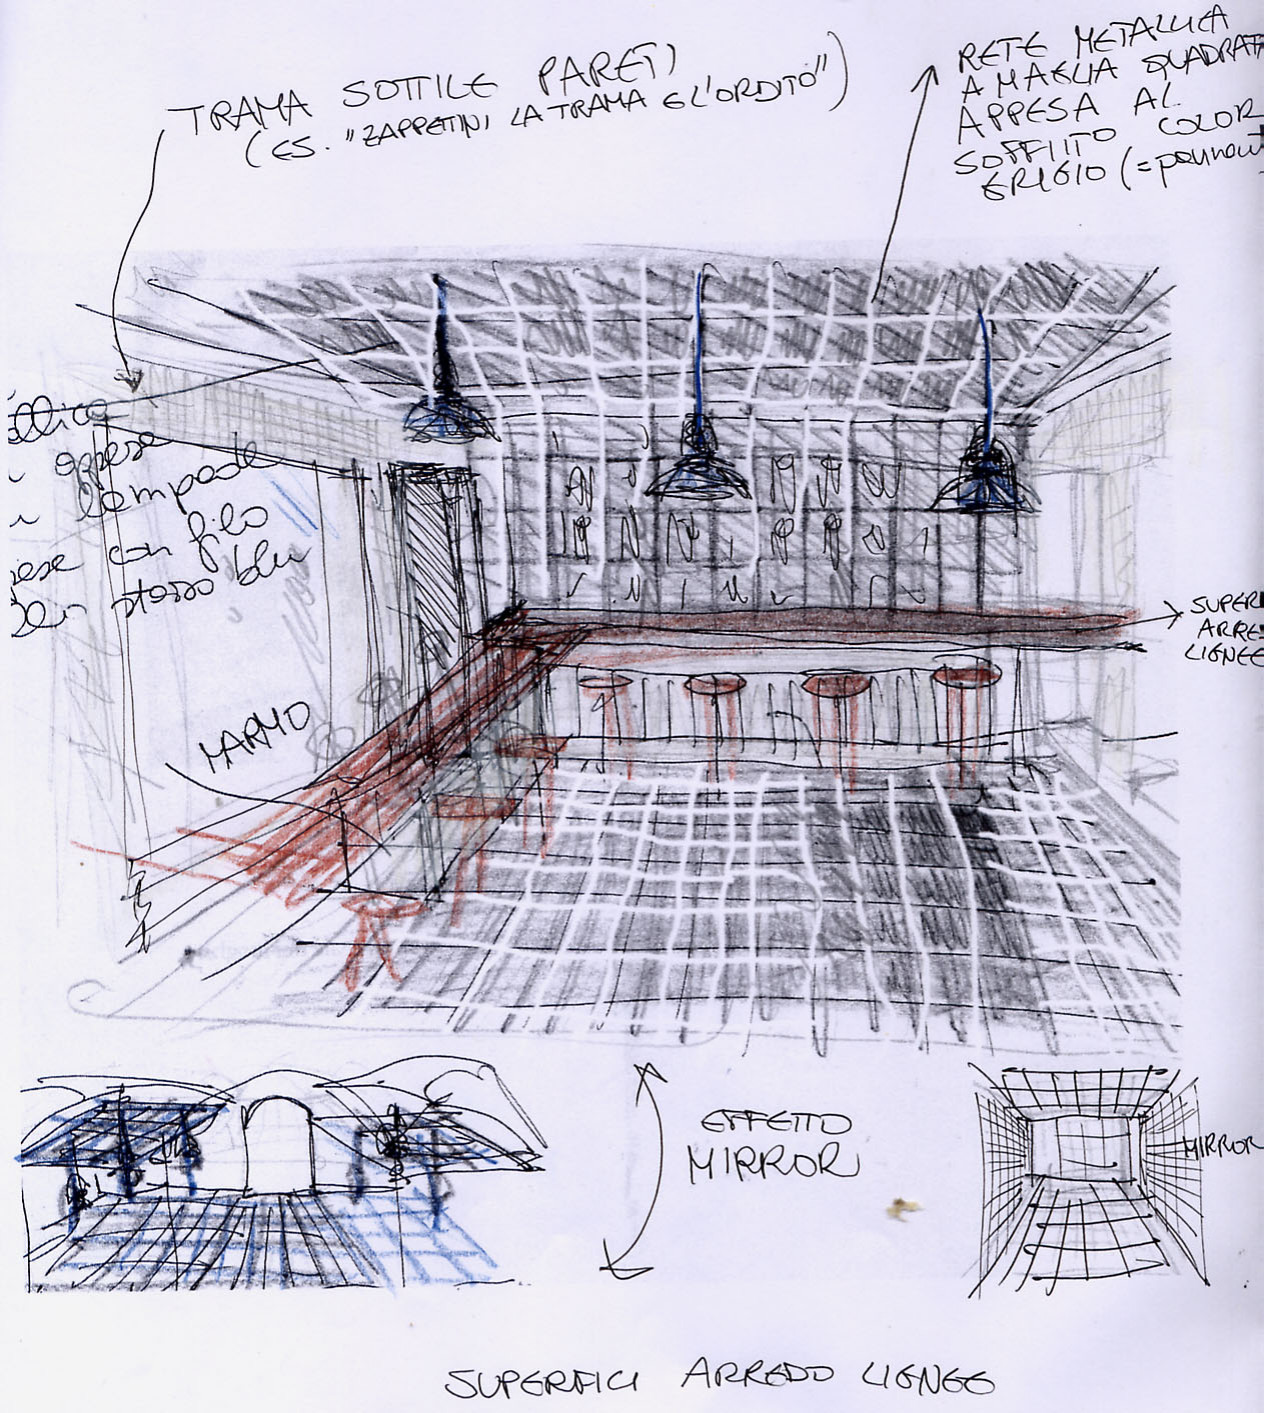 TRAMA SOTTILE PARETI
(ES. "ZAPPETINI LA TRAMA E L'ORDITO")
RETE METALLICA
A MAGLIA QUADRAT
APPESA AL
SOFFITTO COLOR
GRIGIO (=
appese
lampade
con filo
stesso blu
MARMO
SUPER
ARRE
LIGNEE
EFFETTO
MIRROR
MIRROR
SUPERFICI ARREDO LIGNEE